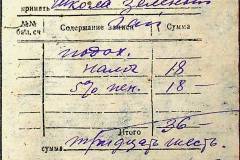 принять Школа Зеленый
Гай
№№ бал. сч. Содержание записи Сумма
подох.
налог 18
5% пен. 18 —
Итого 36 —
сумма тридцать шесть